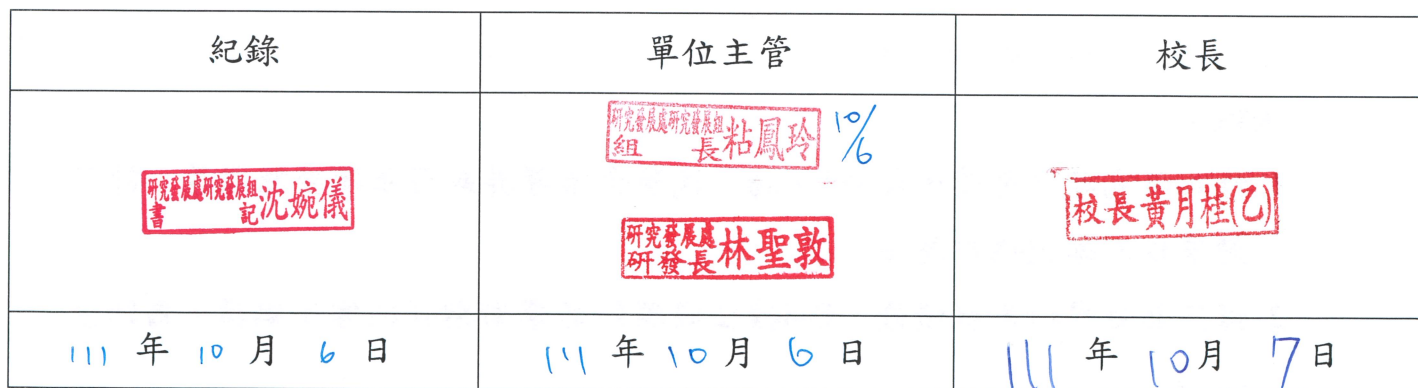 紀錄
單位主管
校長
研究發展處研究發展組
書記 沈婉儀
研究發展處研究發展組
組長 粘鳳玲
10/6
研究發展處
研發長 林聖敦
校長黃月桂(乙)
111 年 10 月 6 日
111 年 10 月 6 日
111 年 10 月 7 日